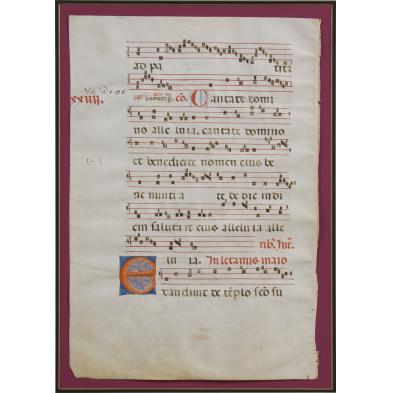 ad pa titis
xxiij.
co. Cantate domi
no alle luia. cantate domino
et benedicite nomen eius be
ne nuntia te de die in di
em salutare eius alleluia alle
luia. In letaniis maio
Exaudivit de templo sco su